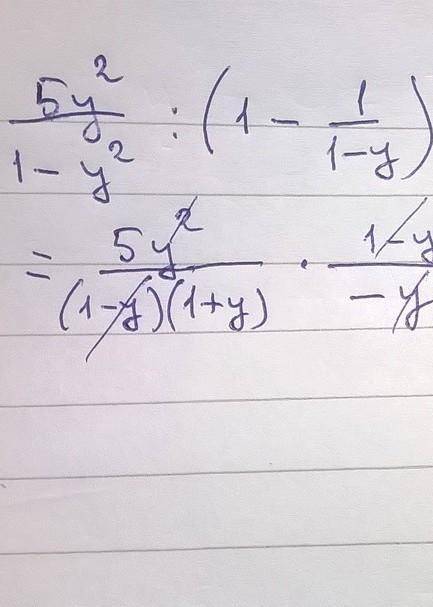 5y²/(1-y²) : (1 - 1/(1-y))
= 5y²/((1-y)(1+y)) · (1-y)/(-y)